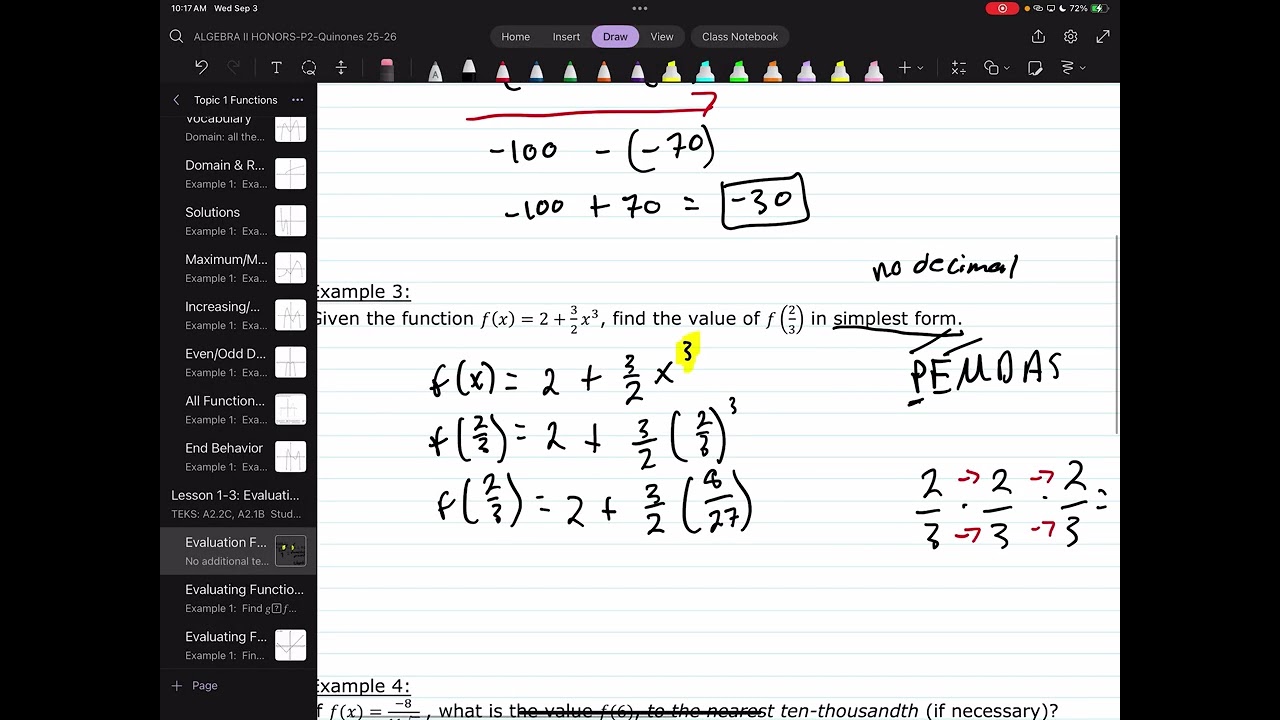 10:17 AM Wed Sep 3
72%
ALGEBRA II HONORS-P2-Quinones 25-26
Home Insert Draw View Class Notebook
Topic 1 Functions
Vocabulary
Domain: all the...
Domain & R...
Example 1: Exa...
Solutions
Example 1: Exa...
Maximum/M...
Example 1: Exa...
Increasing/...
Example 1: Exa...
Even/Odd D...
Example 1: Exa...
All Function...
Example 1: Exa...
End Behavior
Example 1: Exa...
Lesson 1-3: Evaluati...
TEKS: A2.2C, A2.1B Stud...
Evaluation F...
No additional te...
Evaluating Functio...
Example 1: Find g⍰f...
Evaluating F...
Example 1: Fin...
+ Page
-100 - (-70)
-100 + 70 = -30
no decimal
Example 3:
Given the function f(x) = 2 + 3/2 x³, find the value of f(2/3) in simplest form.
f(x) = 2 + 3/2 x³
PEMDAS
f(2/3) = 2 + 3/2 (2/3)³
f(2/3) = 2 + 3/2 (8/27)
2/3 → · 2/3 → · 2/3 =
Example 4:
f(x) = -8, what is the value f(6), to the nearest ten-thousandth (if necessary)?